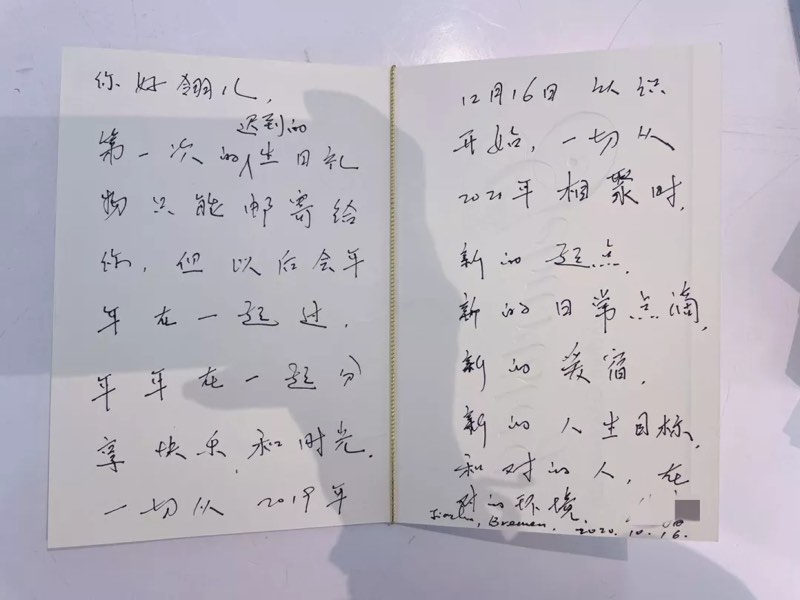 你好翎儿，
迟到的
第一次的生日礼
物只能邮寄给
你，但以后会年
年在一起过，
年年在一起分
享快乐，和时光。
一切从2019年
12月16日认识
开始，一切从
2021年相聚时，
新的起点，
新的日常点滴，
新的爱宿，
新的人生目标，
和对的人，在
对的环境。
Bremen, 2020.10.16.